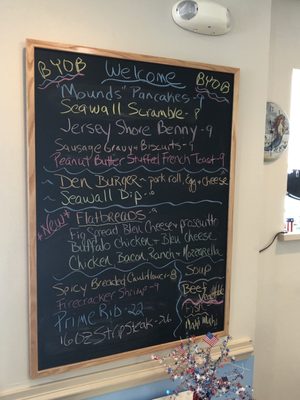 BYOB
Welcome
BYOB
"Mounds" Pancakes - 9
Seawall Scramble - 8
Jersey Shore Benny - 9
Sausage Gravy + Biscuits - 9
Peanut Butter Stuffed French Toast - 9
Den Burger - pork roll, egg + cheese
Seawall Dip - 10
*New* Flatbreads - 9
Fig Spread Bleu Cheese + prosciutto
Buffalo Chicken + Bleu Cheese
Chicken Bacon Ranch + Mozzarella
Spicy Breaded Cauliflower - 8
Firecracker Shrimp - 9
Prime Rib - 22
16oz Strip Steak - 26
Soup
Beef
Vegetable
Fish
Mahi Mahi